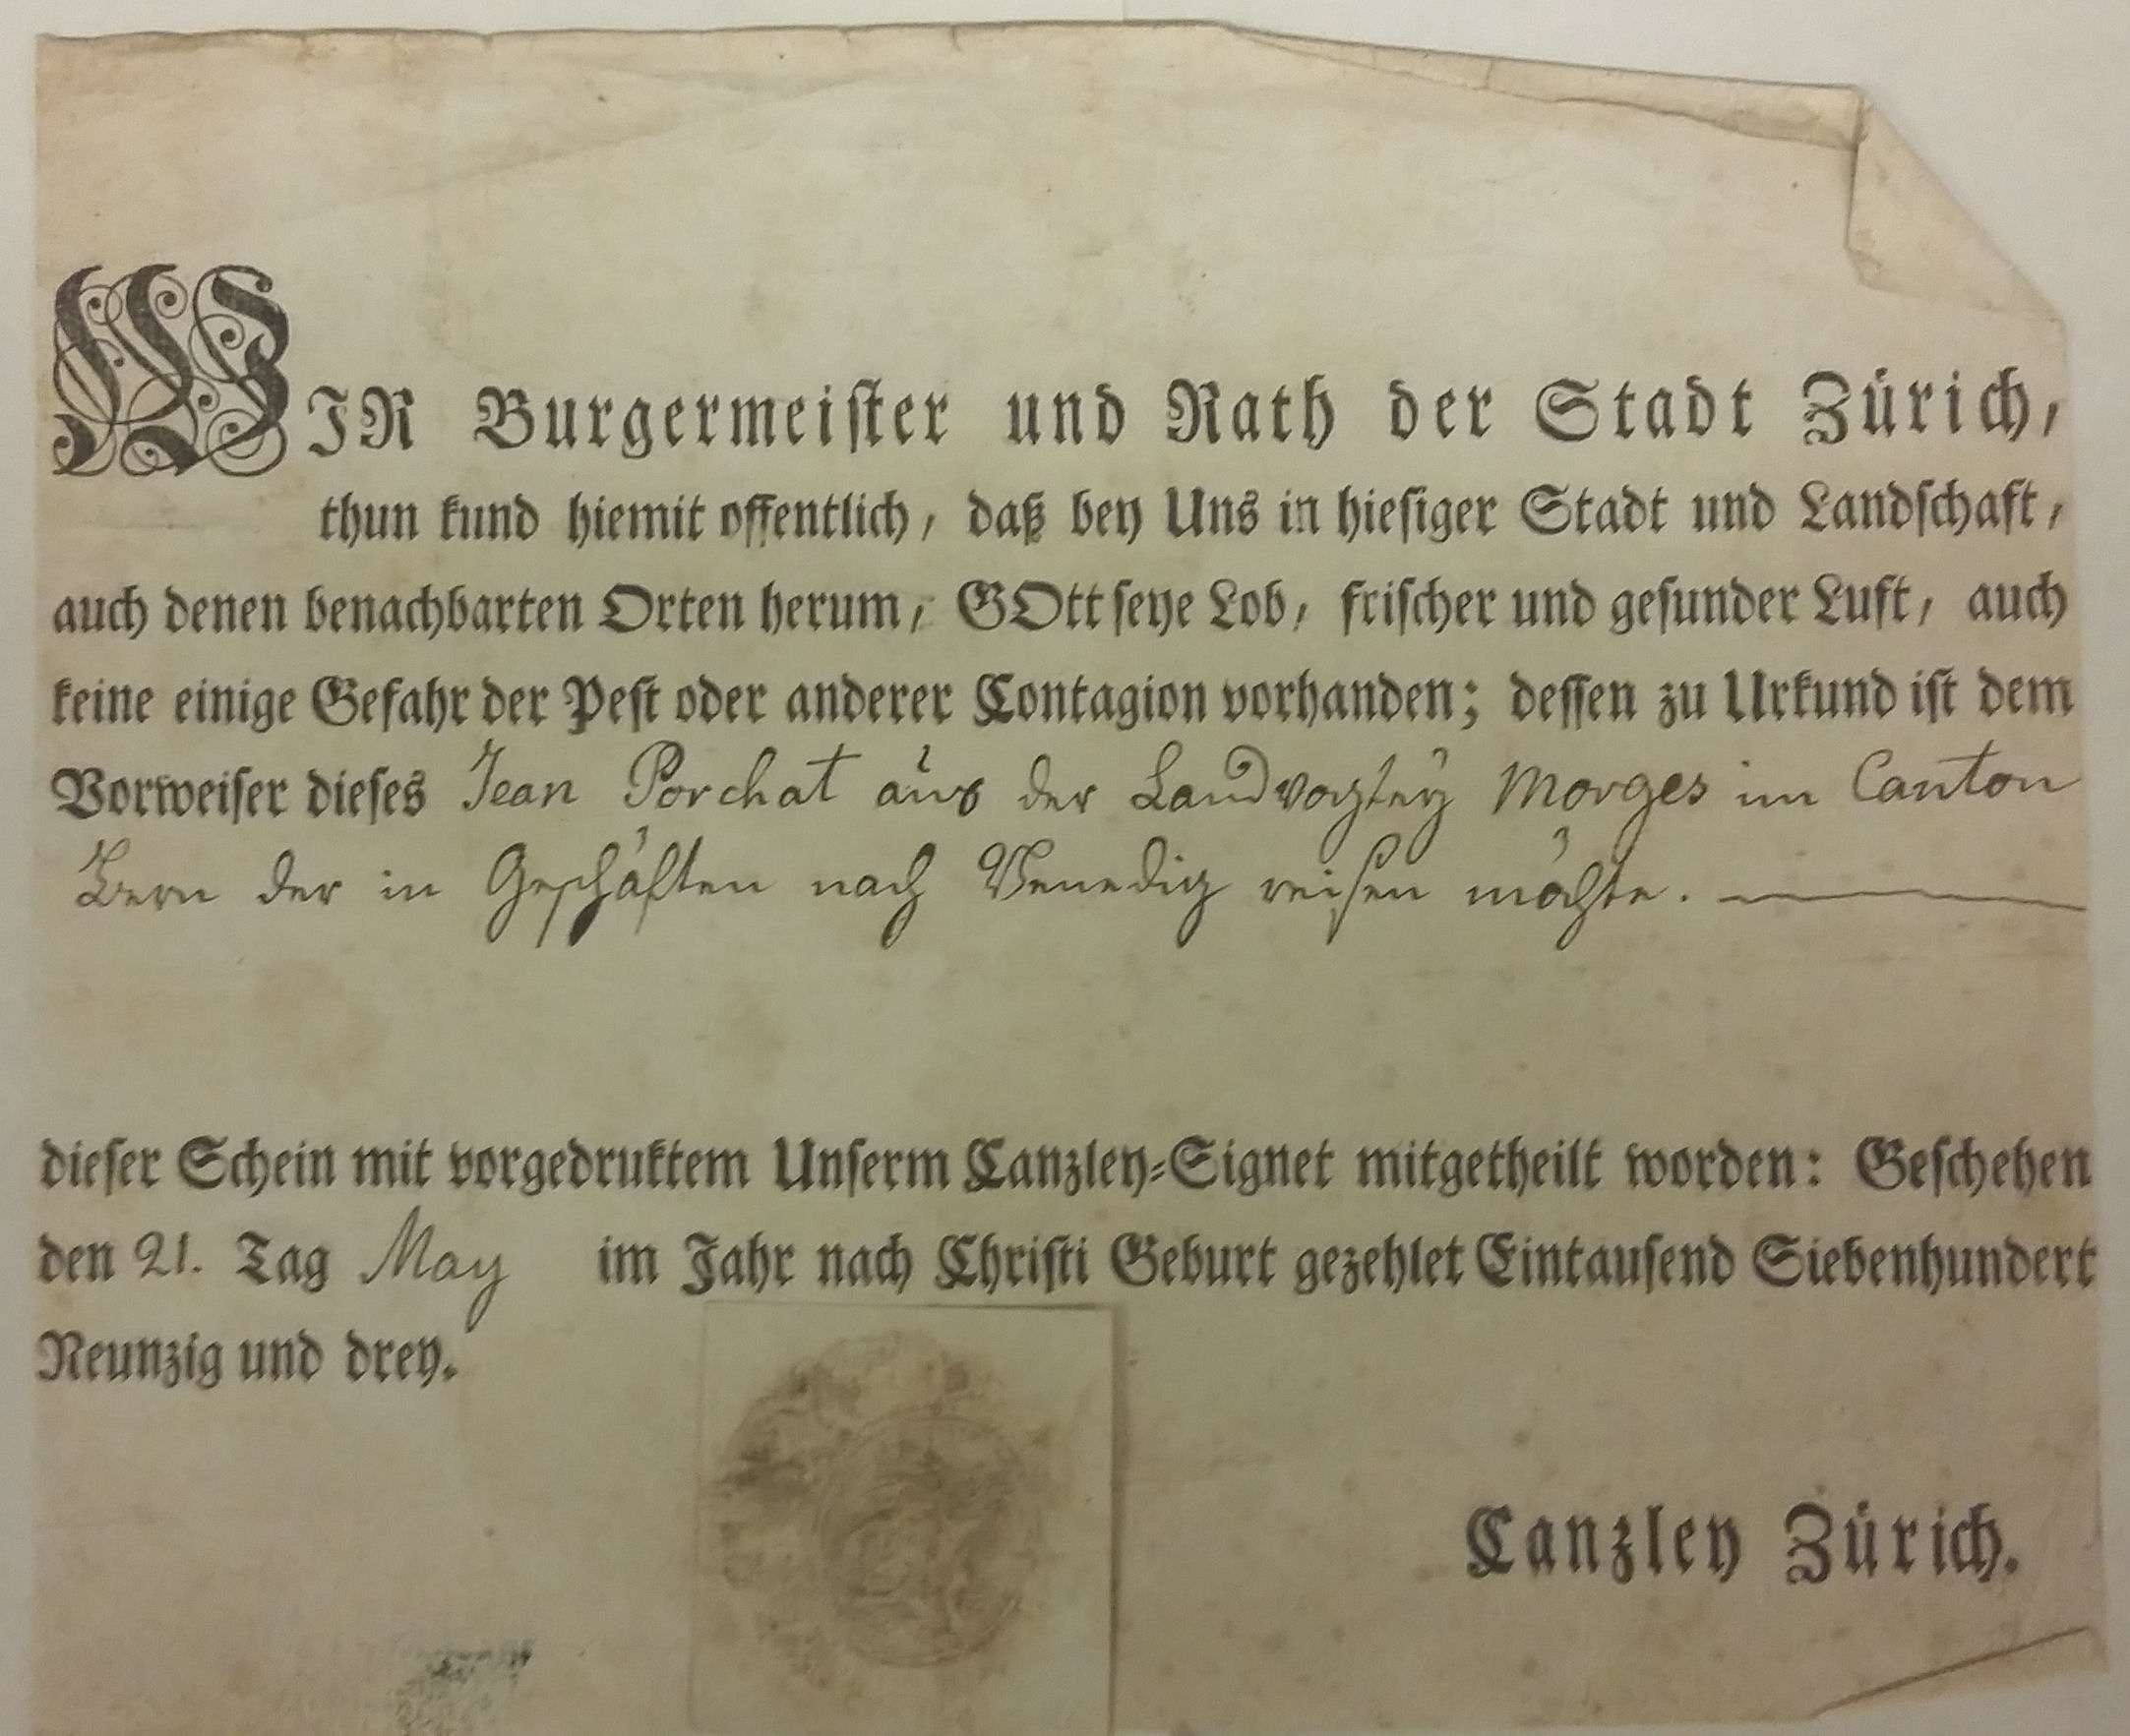 WIR Burgermeister und Rath der Stadt Zürich,
thun kund hiemit offentlich, daß bey Uns in hiesiger Stadt und Landschaft,
auch denen benachbarten Orten herum, GOtt seye Lob, frischer und gesunder Luft, auch
keine einige Gefahr der Pest oder anderer Contagion vorhanden; dessen zu Urkund ist dem
Vorweiser dieses Jean Porchat aus der Landvogtey Morges im Canton
Bern der in Geschäften nach Venedig reisen möchte.
dieser Schein mit vorgedruktem Unserm Canzley-Signet mitgetheilt worden: Geschehen
den 21. Tag May im Jahr nach Christi Geburt gezehlet Eintausend Siebenhundert
Neunzig und drey.
Canzley Zürich.